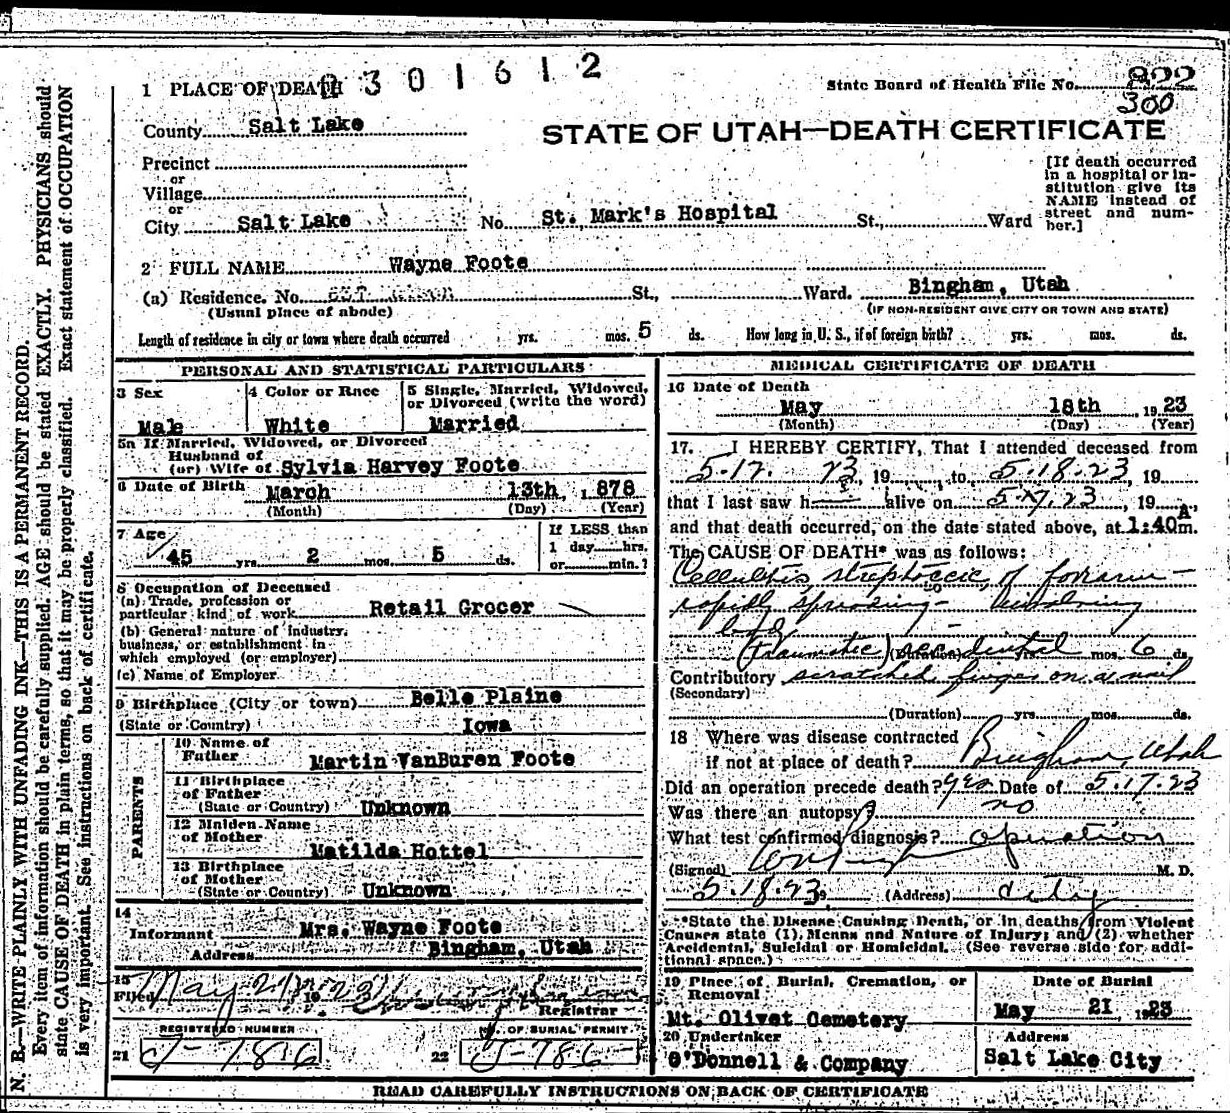 N. B.—WRITE PLAINLY WITH UNFADING INK—THIS IS A PERMANENT RECORD.
Every item of information should be carefully supplied. AGE should be stated EXACTLY. PHYSICIANS should
state CAUSE OF DEATH in plain terms, so that it may be properly classified. Exact statement of OCCUPATION
is very important. See instructions on back of certificate.
1 PLACE OF DEATH 2301612
State Board of Health File No. 822
300
County Salt Lake
STATE OF UTAH—DEATH CERTIFICATE
Precinct
or
Village
or
City Salt Lake No. St. Mark's Hospital St., Ward
[If death occurred
in a hospital or in-
stitution give its
NAME instead of
street and num-
ber.]
2 FULL NAME Wayne Foote
(a) Residence. No. St., Ward. Bingham, Utah
(Usual place of abode) (IF NON-RESIDENT GIVE CITY OR TOWN AND STATE)
Length of residence in city or town where death occurred yrs. mos. 5 ds. How long in U. S., if of foreign birth? yrs. mos. ds.
PERSONAL AND STATISTICAL PARTICULARS
3 Sex
Male
4 Color or Race
White
5 Single, Married, Widowed,
or Divorced (write the word)
Married
5a If Married, Widowed, or Divorced
Husband of
(or) Wife of Sylvia Harvey Foote
6 Date of Birth March 13th, 1878
(Month) (Day) (Year)
7 Age
45 yrs. 2 mos. 5 ds.
If LESS than
1 day hrs.
or min.?
8 Occupation of Deceased
(a) Trade, profession or
particular kind of work Retail Grocer
(b) General nature of industry,
business, or establishment in
which employed (or employer)
(c) Name of Employer
9 Birthplace (City or town) Belle Plaine
(State or Country) Iowa
PARENTS
10 Name of
Father Martin VanBuren Foote
11 Birthplace
of Father
(State or Country) Unknown
12 Maiden Name
of Mother
Matilda Hottel
13 Birthplace
of Mother
(State or Country) Unknown
14
Informant Mrs. Wayne Foote
Address Bingham, Utah
15
Filed May 21, 1923
Registrar
REGISTERED NUMBER
21 J-7816
NO. OF BURIAL PERMIT
22 J-786
MEDICAL CERTIFICATE OF DEATH
16 Date of Death
May 18th, 1923
(Month) (Day) (Year)
17. I HEREBY CERTIFY, That I attended deceased from
5-17. 23, 19, to 5.18.23, 19
that I last saw h alive on 5.17.23, 19
and that death occurred, on the date stated above, at 1:40 A m.
The CAUSE OF DEATH* was as follows:
Cellulitis streptoccic, of forearm—
rapidly spreading— involving
(traumatic) accidental (Duration) yrs. mos. 6 ds.
Contributory scratched finger on a nail
(Secondary)
(Duration) yrs. mos. ds.
18 Where was disease contracted
if not at place of death? Bingham, Utah
Did an operation precede death? yes Date of 5.17.23
Was there an autopsy? no
What test confirmed diagnosis? operation
(Signed) M. D.
5.18.23, 19 (Address) city
*State the Disease Causing Death, or in deaths from Violent
Causes state (1) Means and Nature of Injury; and (2) whether
Accidental, Suicidal or Homicidal. (See reverse side for addi-
tional space.)
19 Place of Burial, Cremation, or
Removal
Mt. Olivet Cemetery
Date of Burial
May 21, 1923
20 Undertaker
O'Donnell & Company
Address
Salt Lake City
READ CAREFULLY INSTRUCTIONS ON BACK OF CERTIFICATE